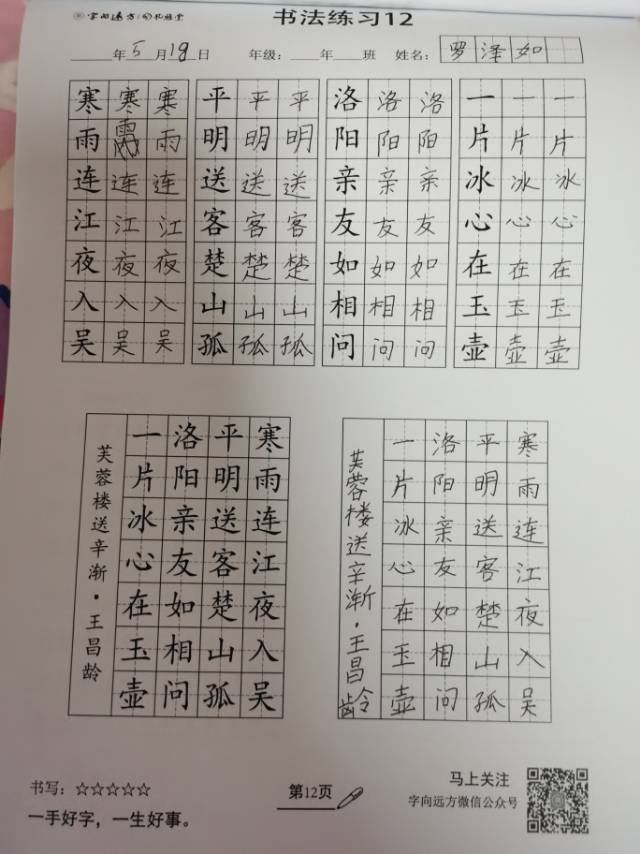 字向远方
书法练习12
年5月19日 年级： 年 班 姓名：罗泽如
寒寒寒 平平平 洛洛洛 一一一
雨雨 明明明 阳阳阳 片片片
连连连 送送送 亲亲亲 冰冰冰
江江江 客客客 友友友 心心心
夜夜夜 楚楚楚 如如如 在在在
入入入 山山山 相相相 玉玉玉
吴吴吴 孤孤孤 问问问 壶壶壶
芙蓉楼送辛渐·王昌龄
寒雨连江夜入吴
平明送客楚山孤
洛阳亲友如相问
一片冰心在玉壶
芙蓉楼送辛渐·王昌龄
寒雨连江夜入吴
平明送客楚山孤
洛阳亲友如相问
一片冰心在玉壶
书写：☆☆☆☆☆
一手好字，一生好事。
第12页
马上关注
字向远方微信公众号